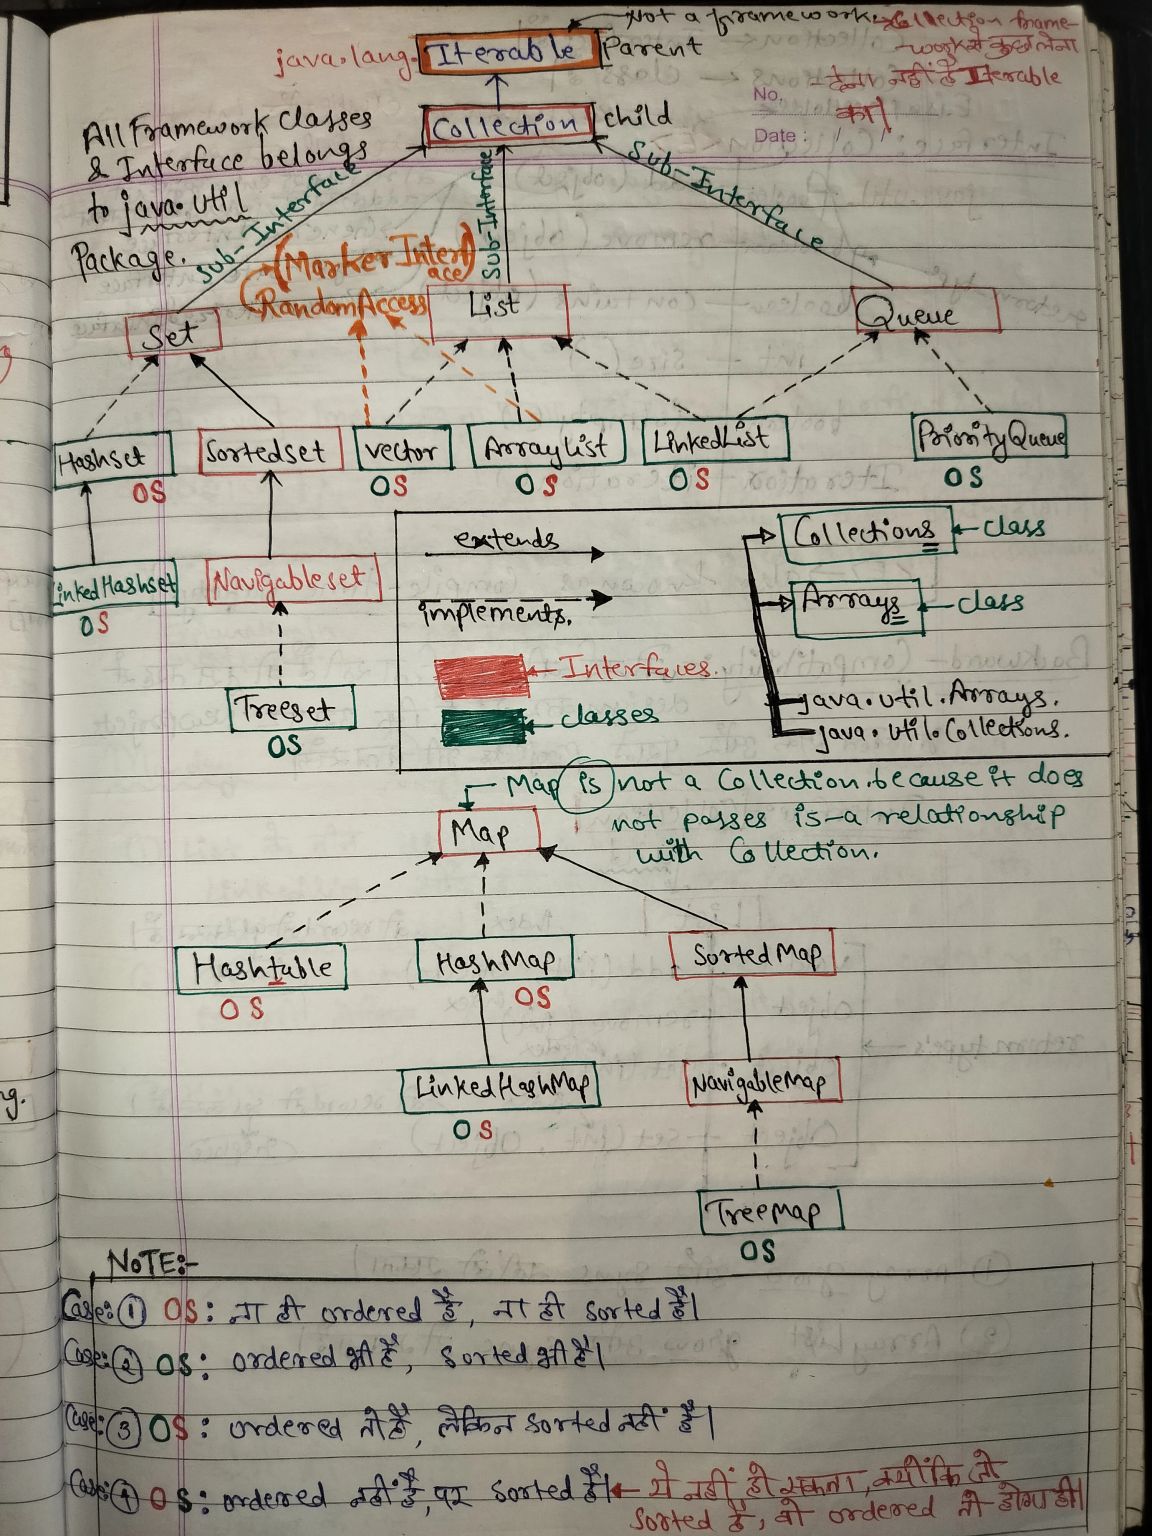 Not a framework. Collection frame-
work से कुछ लेना
देना नहीं है Iterable
का।
java.lang. Iterable Parent
No.
Date : / /
Collection child
All Framework classes
& Interface belongs
to java.util
Package.
Sub-Interface
Sub-Interface
Sub-Interface
(Marker Interf
ace)
RandomAccess
Set
List
Queue
Hashset
OS
Sortedset
vector
OS
ArrayList
OS
LinkedList
OS
PriorityQueue
OS
LinkedHashset
OS
Navigableset
Treeset
OS
extends
implements.
Interfaces.
classes
Collections class
Arrays class
java.util.Arrays.
java.util.Collections.
Map is not a Collection because it does
not passes is-a relationship
with Collection.
Map
Hashtable
OS
HashMap
OS
SortedMap
LinkedHashMap
OS
NavigableMap
TreeMap
OS
NOTE:-
Case: 1 OS: ना ही ordered है, ना ही sorted है।
Case: 2 OS: ordered भी है, sorted भी है।
Case: 3 OS: ordered तो है, लेकिन sorted नहीं है।
Case: 4 OS: ordered नहीं है, पर sorted है। ये नहीं हो सकता, क्योंकि जो
sorted है, वो ordered तो होगा ही।